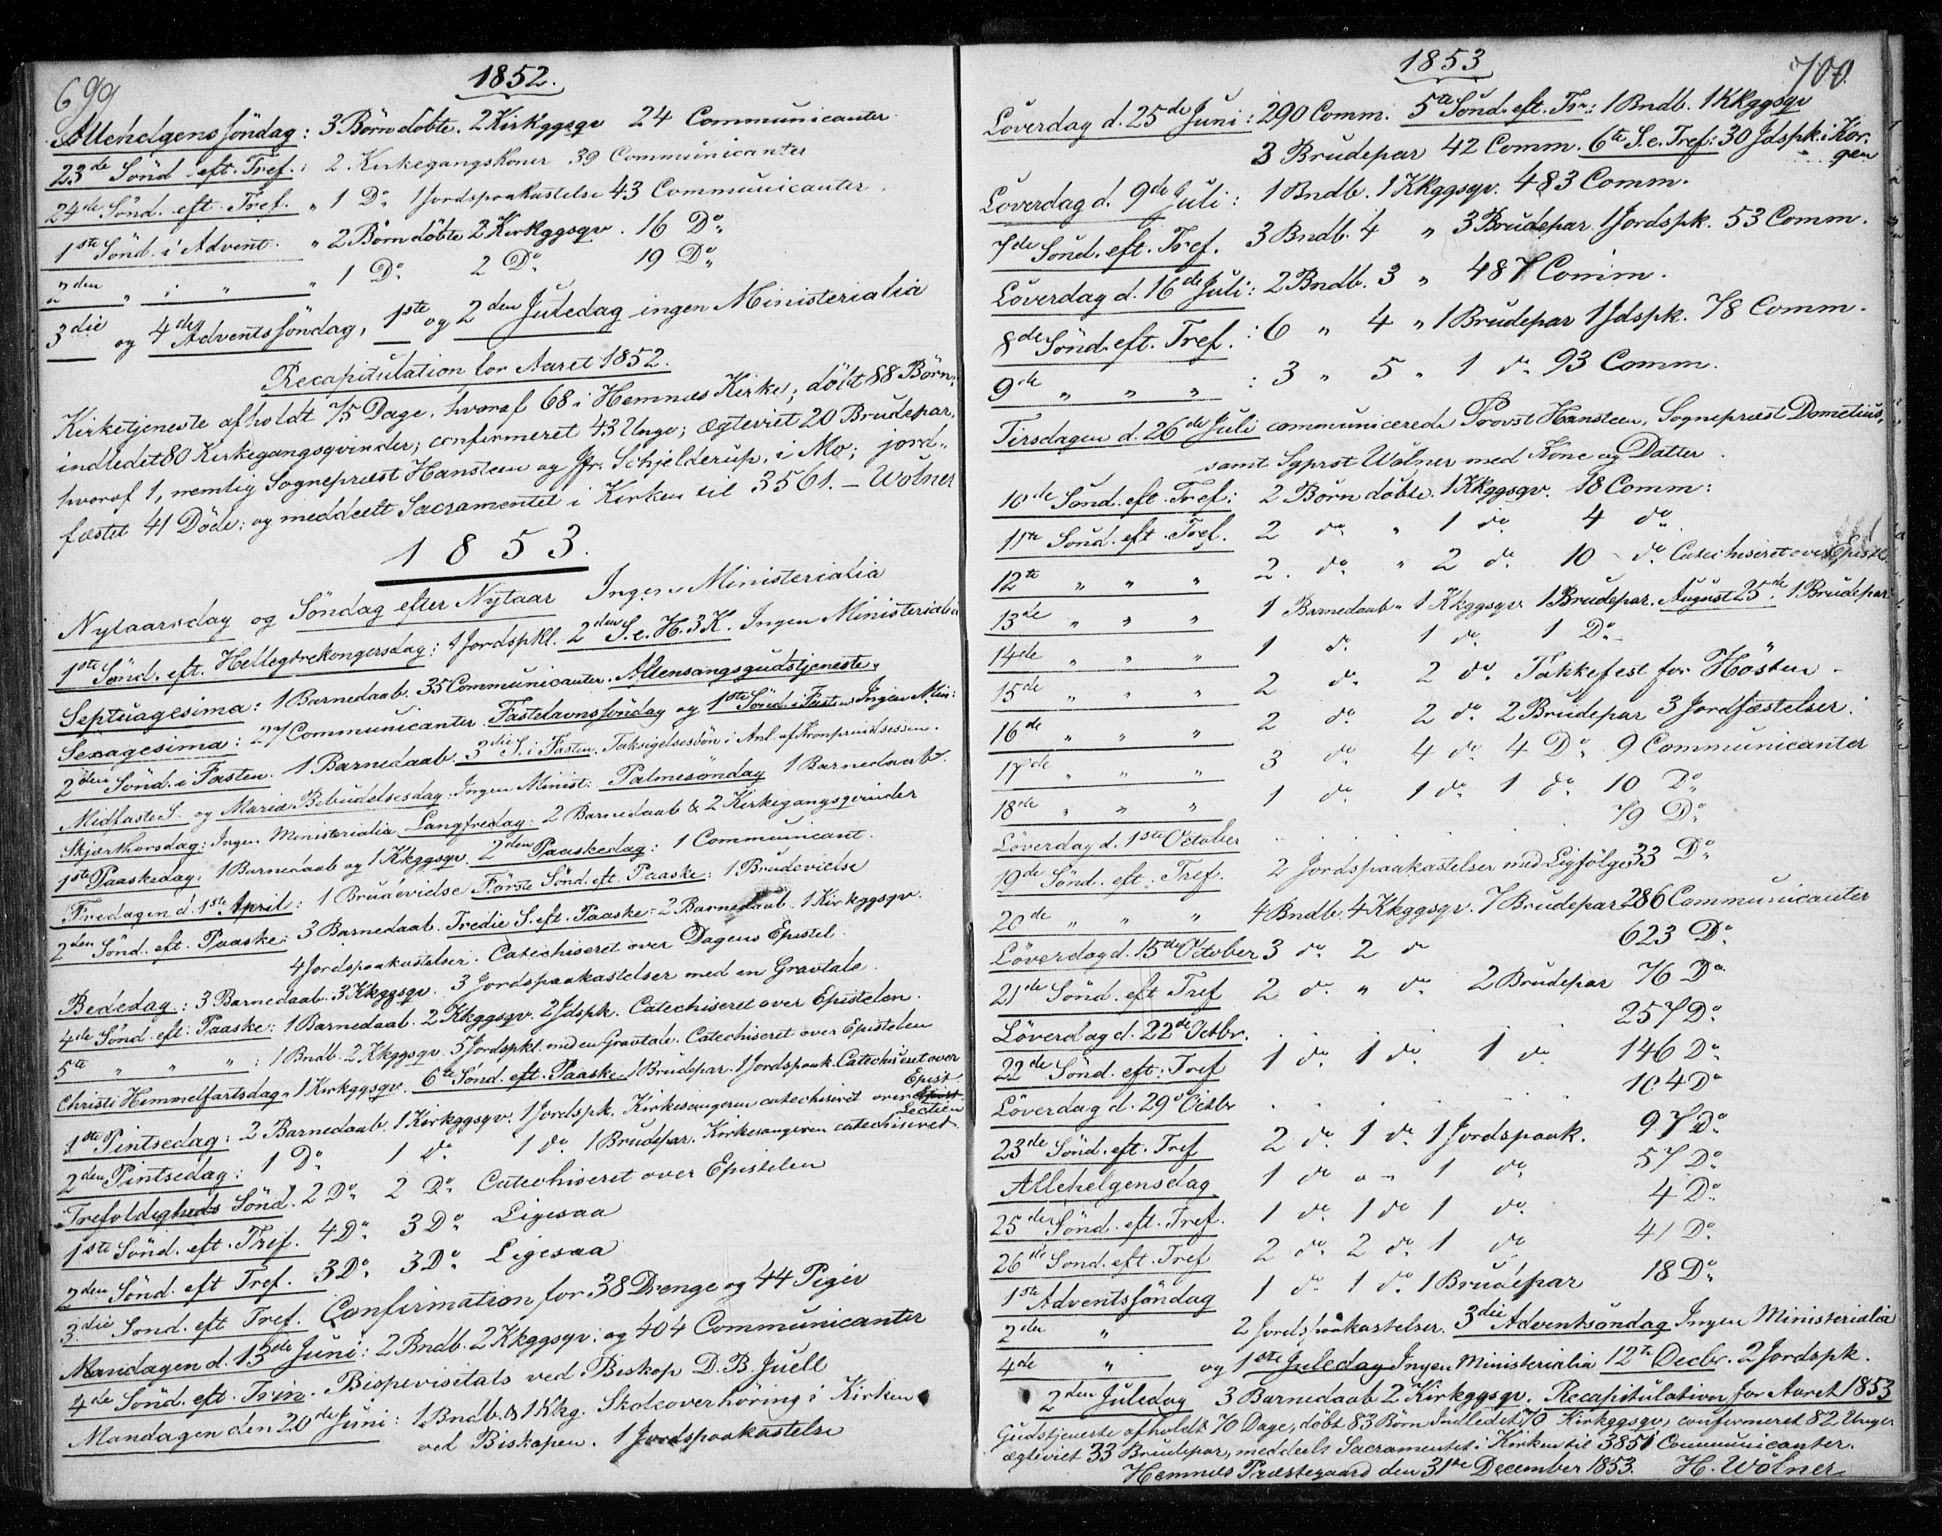 699
1852.
Allehelgens söndag: 3 Börn döbte. 2 Kirkggsqv 24 Communicanter.
23de Sönd. eft. Tref.: 2 Kirkegangskoner 39 Communicanter
24de Sönd. eft. Tref. „ 1 Do. 1 Jordspaakastelse 43 Communicanter.
1ste Sönd. i Advent. „ 2 Börn döbte 2 Kirkggsqv. 16 Do„
2den „ i „ „ 1 Do. 2 Do. 19 Do„
3die og 4de Adventssöndag, 1ste og 2den Juledag ingen Ministerialia
Recapitulation for Aaret 1852.
Kirketjeneste afholdt 75 Dage, hvoraf 68 i Hemnæs Kirke; döbt 88 Börn;
indledet 80 Kirkegangsqvinder; confirmeret 43 Unge; ægteviet 20 Brudepar,
hvoraf 1, nemlig Sognepræst Hansteen og Jfr. Schjelderup, i Mo; jord-
fæstet 41 Döde; og meddeelt Sacramentet i Kirken til 3561. – Wolner
1853.
Nytaarsdag og Söndag efter Nytaar Ingen Ministerialia
1ste Sönd. eft. Helligtrekongersdag: 1 Jordspkl. 2den S. e. H. 3 K. Ingen Ministerialia
Septuagesima: 1 Barnedaab. 35 Communicanter. Aftensangsgudstjeneste.
Sexagesima: 27 Communicanter. Fastelavnssöndag og 1ste Sönd. i Fasten Ingen Min:
2den Sönd. i Fasten. 1 Barnedaab. 3die S. i Fasten. Taksigelsesbön i Anl. af Kronprindsessen.
Midfaste S. og Mariæ Bebudelsesdag. Ingen Minist: Palmesöndag 1 Barnedaab.
Skjærthorsdag: Ingen Ministerialia Langfredag: 2 Barnedaab & 2 Kirkegangsqvinder
1ste Paaskedag: 1 Barnedaab og 1 Kkggsqv. 2den Paaskedag: 1 Communicant.
Fredagen d. 1ste April: 1 Brudevielse Förste Sönd. eft. Paaske: 1 Brudevielse
2den Sönd. eft. Paaske: 3 Barnedaab. Tredie S. eft. Paaske: 2 Barnedaab. 1 Kirkggsqv.
4 Jordspaakastelser. Catechiseret over Dagens Epistel.
Bededag: 3 Barnedaab. 3 Kkggsqv. 3 Jordspaakastelser med en Gravtale.
4de Sönd. eft. Paaske: 1 Barnedaab. 2 Kkggsqv. 2 Jdspk. Catechiseret over Epistelen.
5te „ „ „: 1 Bndb. 2 Kkggsqv. 5 Jordspkl. med en Gravtale. Catechiseret over Epistelen
Christi Himmelfartsdag. 1 Kirkggsqv. 6te Sönd. eft. Paaske. 1 Brudepar. 1 Jordspaak. Catechiseret over Epist.
1ste Pintsedag: 2 Barnedaab. 1 Kirkggsqv. 1 Jordspk. Kirkesangeren catechiseret over Lectien
2den Pintsedag: 1 Do. 1 do. 1 do. 1 Brudepar. Kirkesangeren catechiseret
Trefoldigheds Sönd. 2 Do. 2 Do. Catechiseret over Epistelen
1ste Sönd. eft. Tref. 4 Do. 3 Do. Ligesaa
2den Sönd. eft Tref. 3 Do. 3 Do. Ligesaa
3die Sönd. eft Tref. Confirmation for 38 Drenge og 44 Piger
Mandagen d. 13de Juni: 2 Bndb. 2 Kkggsqv. og 404 Communicanter
4de Sönd. eft. Trin. Bispevisitats ved Biskop D. B. Juell
Mandagen den 20de Juni: 1 Bndb. & 1 Kkg. Skoleoverhöring i Kirken
ved Biskopen. 1 Jordspaakastelse
1853
700.
Löverdag d. 25de Juni: 290 Comm. 5te Sönd. eft. Tr.: 1 Bndb. 1 Kkggsqv
3 Brudepar 42 Comm. 6te S. e. Tref: 30 Jdspk. i Kor-
gen
Löverdag d. 9de Juli: 1 Bndb. 1 Kkggsqv. 483 Comm.
7de Sönd. eft. Tref. 3 Bndb. 4 „ 3 Brudepar 1 Jordspk. 53 Comm.
Löverdag d. 16de Juli: 2 Bndb. 3 „ 487 Comm.
8de Sönd. eft. Tref.: 6 „ 4 „ 1 Brudepar 1 Jdspk. 78 Comm.
9de „ „ „: 3 „ 5 „ 1 do. 93 Comm.
Tirsdagen d. 26de Juli communicerede Provst Hansteen, Sognepræst Dometius,
samt Sgprst Wolner med Kone og Datter.
10de Sönd. eft. Tref: 2 Börn döbte. 1 Kkggsqv. 18 Comm:
11te Sönd. eft. Tref. 2 do „ 1 do 4 do.
12te „ „ „ 2. do. „ 2 do. 10 – do. Catechiseret over Epistl.
13de „ „ „ 1 Barnedaab. 1 Kkggsqv. 1 Brudepar. August 25de 1 Brudepar
14de „ „ „ 1 do. 1 do. 1 Do.
15de „ „ „ 2 do. 2 do. Takkefest for Hösten –
16de „ „ „ 2 do. 2 do. 2 Brudepar 3 Jordfæstelser.
17de „ „ „ 3 do. 4 do. 4 Do. 9 Communicanter
18de „ „ „ 1 do. 1 do. 1 do. 10 Do.
Löverdag d. 1ste October . . . . . 79 Do.
19de Sönd. eft. Tref. 2 Jordspaakastelser med Ligfölge 33 Do.
20de „ „ „ 4 Bndb. 4 Kkggsqv. 7 Brudepar 286 Communicanter
Löverdag d. 15de October 3 do. 2 do 623 Do.
21de Sönd. eft Tref 2 do. „ do. 2 Brudepar 76 Do.
Löverdag d. 22de Octbr. . . . . . 257 Do.
22de Sönd. eft: Tref 1 do. 1 do. 1 do. 146 Do.
Löverdag d. 29de Octbr . . . . . 104 Do
23de Sönd. eft. Tref 2 do. 1 do. 1 Jordspaak. 97 Do.
Allehelgensdag 1 do „ – 1 do. 57 Do.
25de Sönd. eft. Tref. 1 do. 1 do 1 do. 4 Do.
26de Sönd. eft. Tref 2 do. 2 do. 1 do 41 Do.
1ste Adventssöndag 1 do. 1 do. 1 Brudepar 18 Do.
2den „ 2 Jordspaakastelser. 3die Adventsöndag Ingen Ministerialia
4de „ og 1ste Juledag Ingen Ministerialia 12te Decbr. 2 Jordspk.
2den Juledag 3 Barnedaab 2 Kirkggsqv. Recapitulation for Aaret 1853
Gudstjeneste afholdt 70 Dage, döbt 83 Börn Indledet 70 Kirkggsqv, confirmeret 82 Unge
ægteviet 33 Brudepar, meddeelt Sacramentet i Kirken til 3851 Communicanter.
Hemnæs Præstegaard den 31te December 1853. H. Wolner